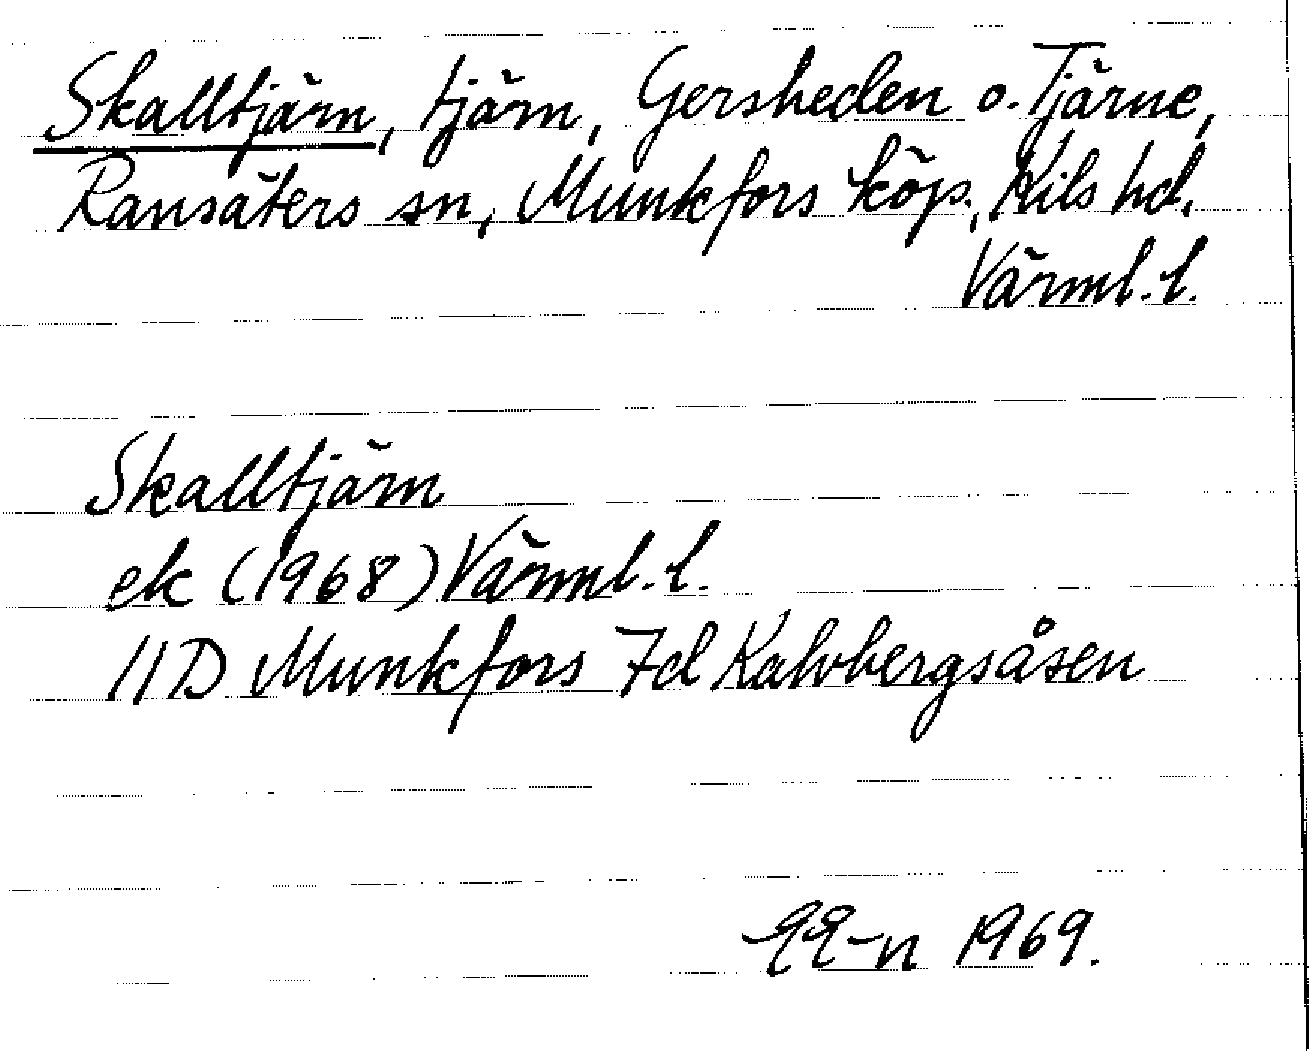 Skalltjärn, tjärn, Gersheden o. Tjärne,
Ransäters sn, Munkfors köp., Kils hd.
Värml. l.
Skalltjärn
ek (1968) Värml. l.
11D Munkfors 7d Kalvbergsåsen
1969.